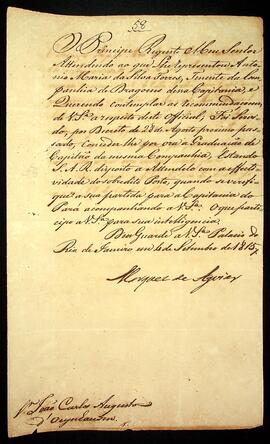 59
O Principe Regente Meu Senhor
Attendendo ao que Lhe representou Anto-
nio Maria da Silva Torres, Tenente da Com-
panhia de Dragoens dessa Capitania, e
Querendo contemplar as recommendaçoens
de V.Sª a respeito deste Official, Foi Servi-
do, por Decreto de 28 de Agosto proximo pas-
sado, Conceder-lhe a Graduação de
Capitão da mesma Companhia, Estando
S. A. R. disposto a Attendelo com a effecti-
vidade do sobredito Posto, quando se verifi-
que a sua partida para a Capitania do
Pará acompanhando a V.Sª. O que parti-
cipo a V.Sª para sua intelligencia.
Deos Guarde a V.Sª. Palacio do
Rio de Janeiro em 4 de Setembro de 1815
Marquez de Aguiar
Sr. João Carlos Augusto
d'Oeynhausen